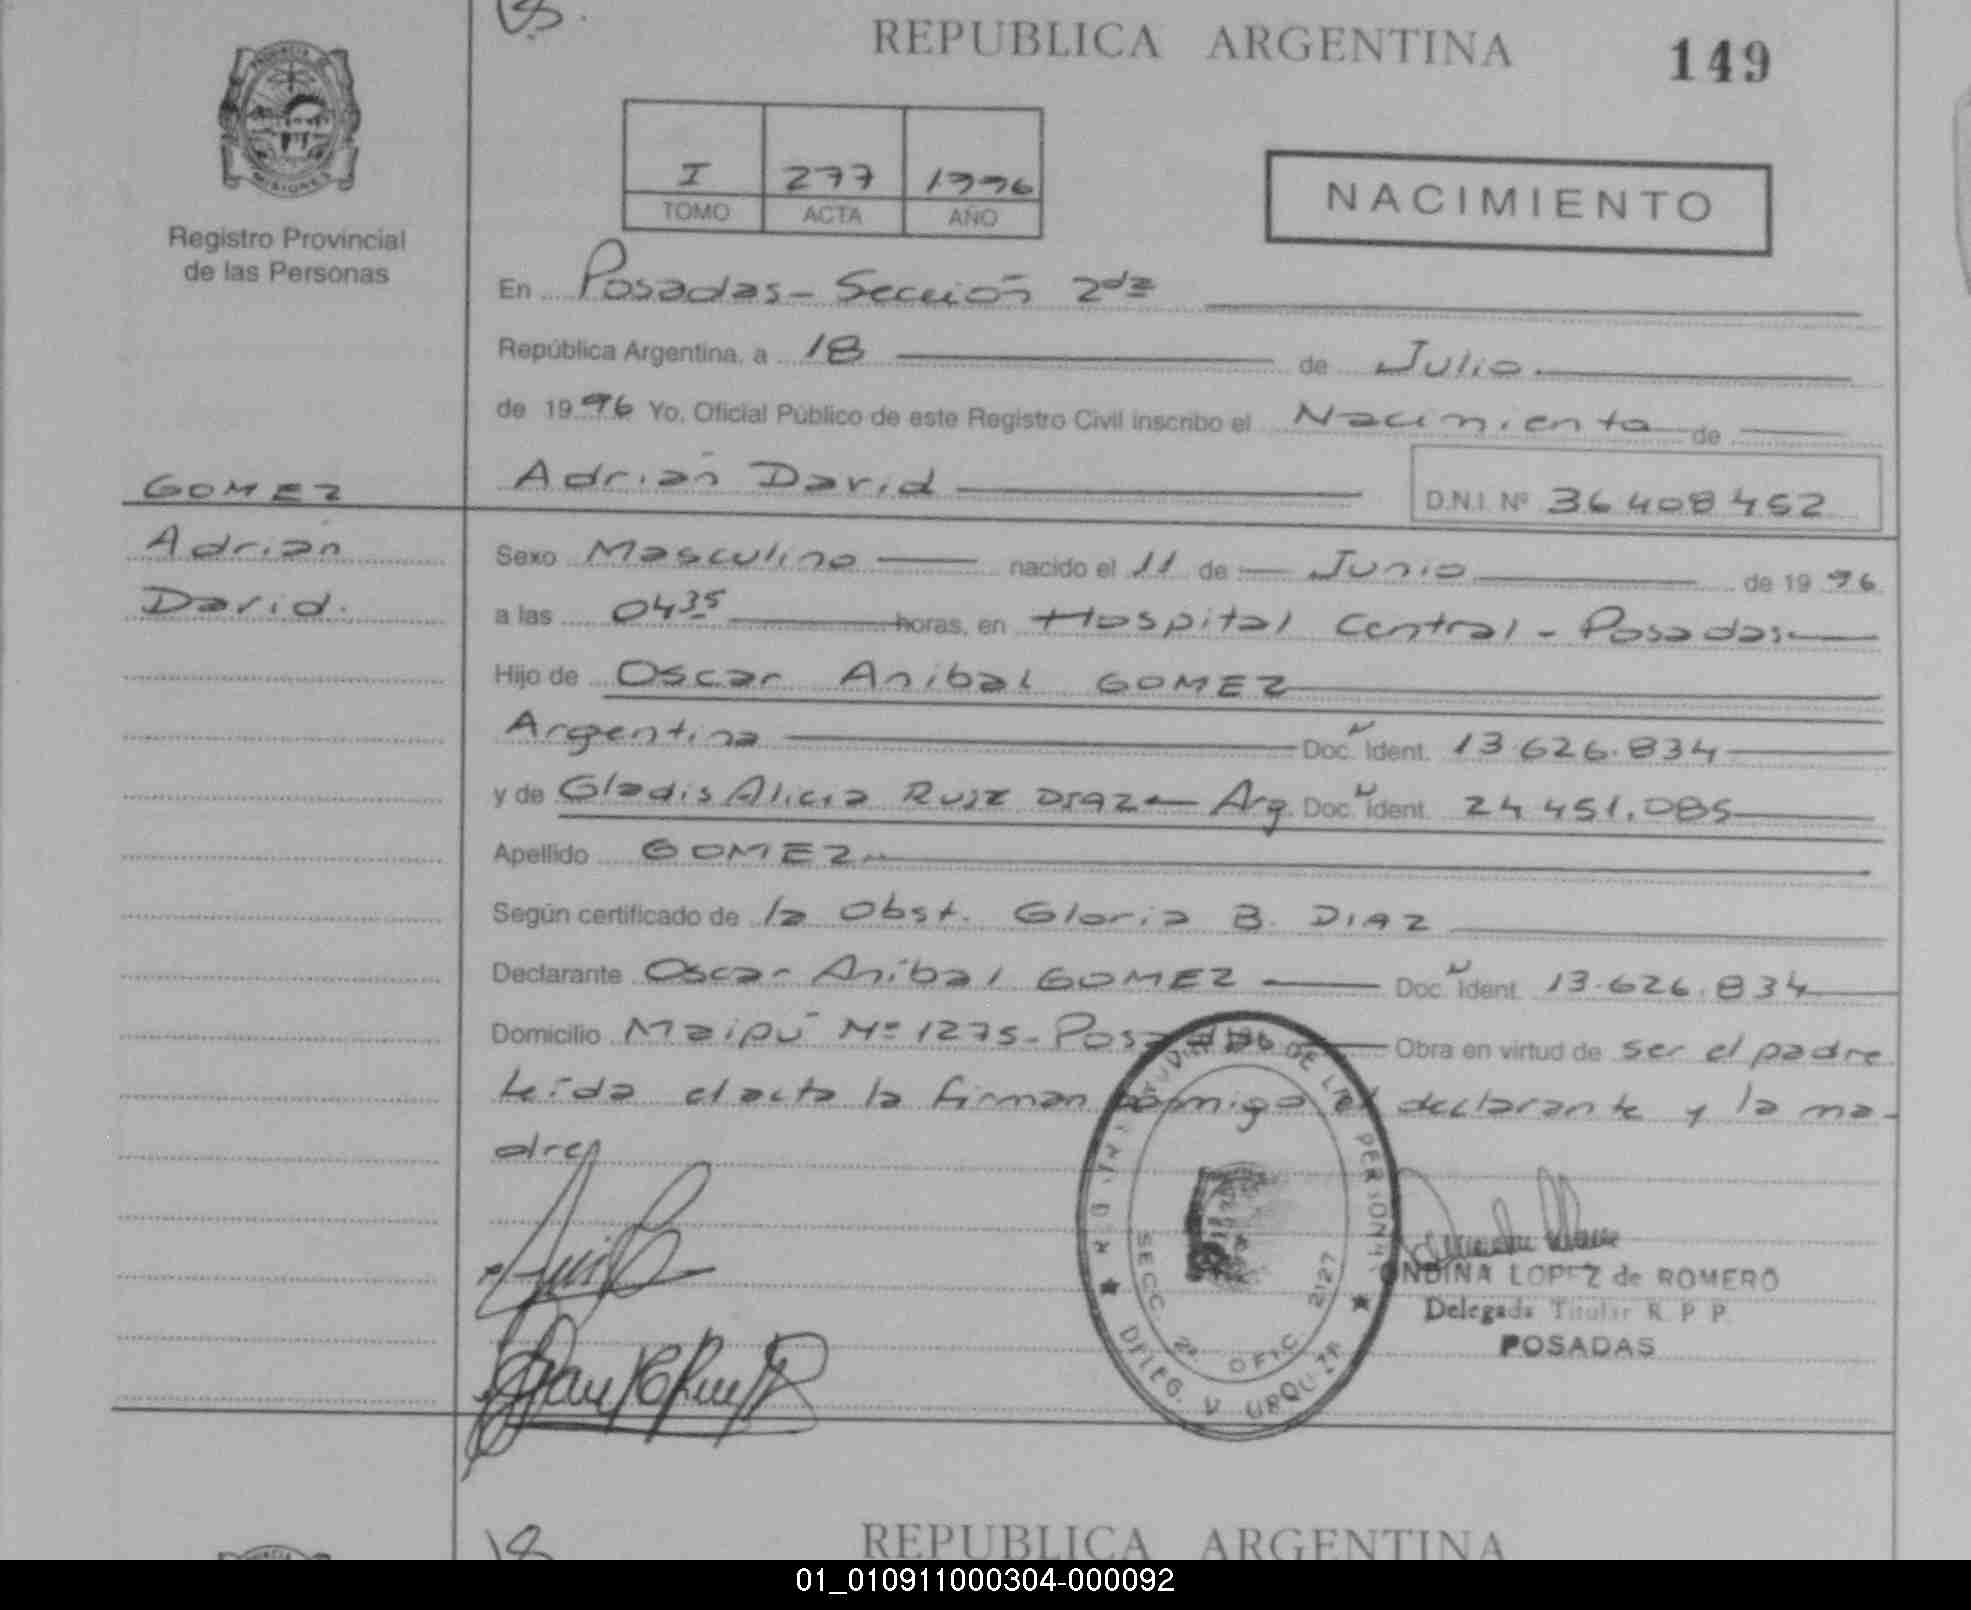 REPUBLICA ARGENTINA
149
PROVINCIA DE
MISIONES
Registro Provincial
de las Personas
I 277 1996
TOMO ACTA AÑO
NACIMIENTO
En Posadas - Sección 2da
República Argentina, a 18 de Julio.
de 1996 Yo, Oficial Público de este Registro Civil inscribo el Nacimiento de
Adrián David
D.N.I. Nº 36 408 452
GOMEZ
Adrián
David.
Sexo Masculino nacido el 11 de Junio de 1996
a las 0435 horas, en Hospital Central - Posadas
Hijo de Oscar Anibal GOMEZ
Argentina Doc. Ident. 13.626.834
y de Gladis Alicia RUIZ DIAZ - Arg. Doc. Ident. 24 451.085
Apellido GOMEZ
Según certificado de la Obst. Gloria B. DIAZ
Declarante Oscar Anibal GOMEZ Doc. Ident. 13.626.834
Domicilio Maipú Nº 1275 - Posadas Obra en virtud de ser el padre
Leída el acta la firman conmigo el declarante y la ma-
dre
DE LAS PERSONAS
SECC. 2ª OFIC. 2127
DELEG. V URQUIZA
ONDINA LOPEZ de ROMERO
Delegada Titular R. P. P.
POSADAS
REPUBLICA ARGENTINA
01_010911000304-000092